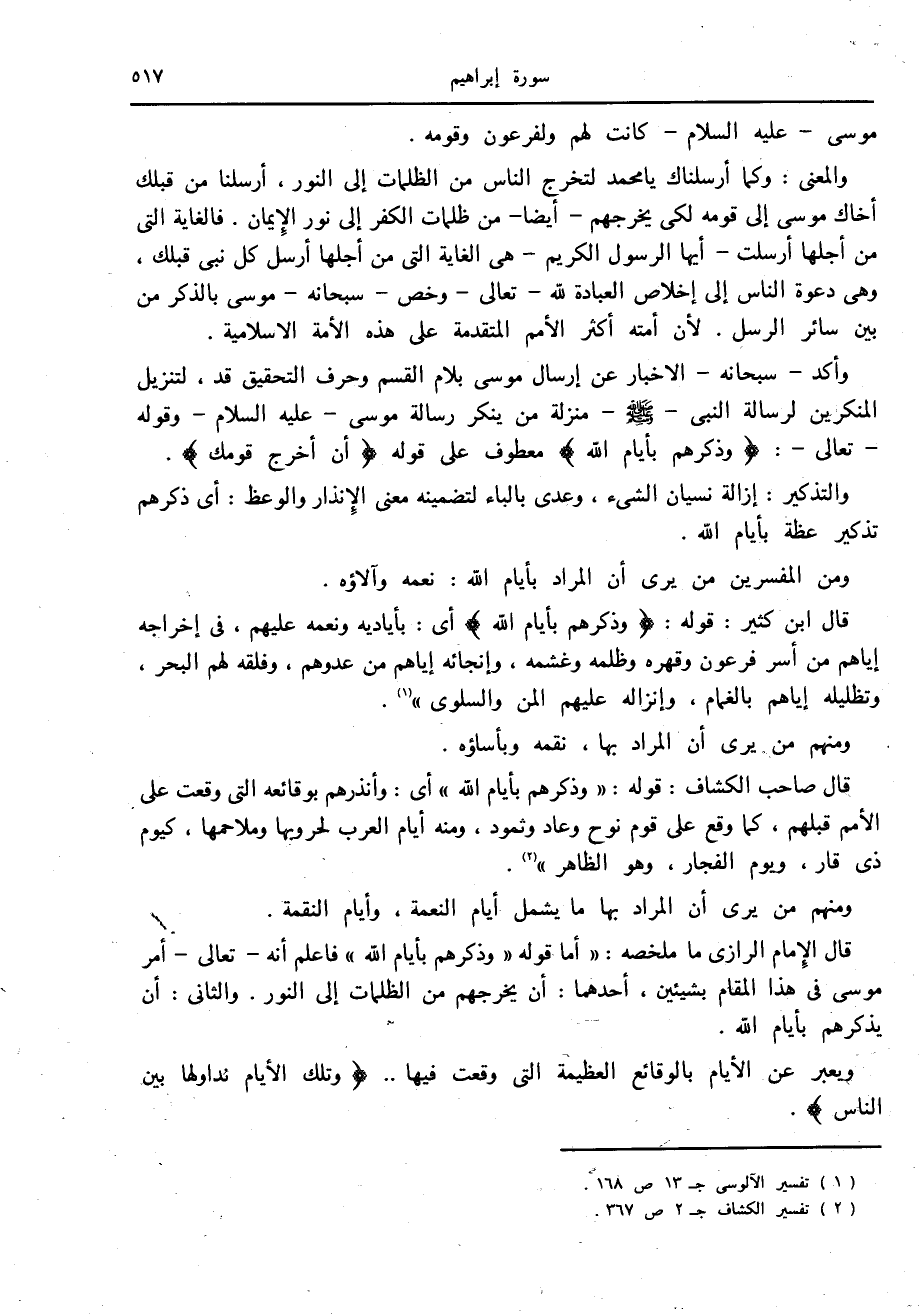 سورة إبراهيم ٥١٧
موسى - عليه السلام - كانت لهم ولفرعون وقومه .
والمعنى : وكما أرسلناك يامحمد لتخرج الناس من الظلمات إلى النور ، أرسلنا من قبلك
أخاك موسى إلى قومه لكى يخرجهم - أيضا- من ظلمات الكفر إلى نور الإيمان . فالغاية التى
من أجلها أرسلت - أيها الرسول الكريم - هى الغاية التى من أجلها أرسل كل نبى قبلك ،
وهى دعوة الناس إلى إخلاص العبادة لله - تعالى - وخص - سبحانه - موسى بالذكر من
بين سائر الرسل . لأن أمته أكثر الأمم المتقدمة على هذه الأمة الاسلامية .
وأكد - سبحانه - الاخبار عن إرسال موسى بلام القسم وحرف التحقيق قد ، لتنزيل
المنكرين لرسالة النبى - ﷺ - منزلة من ينكر رسالة موسى - عليه السلام - وقوله
- تعالى - : ﴿ وذكرهم بأيام الله ﴾ معطوف على قوله ﴿ أن أخرج قومك ﴾ .
والتذكير : إزالة نسيان الشىء ، وعدى بالباء لتضمينه معنى الإنذار والوعظ : أى ذكرهم
تذكير عظة بأيام الله .
ومن المفسرين من يرى أن المراد بأيام الله : نعمه وآلاؤه .
قال ابن كثير : قوله : ﴿ وذكرهم بأيام الله ﴾ أى : بأياديه ونعمه عليهم ، فى إخراجه
إياهم من أسر فرعون وقهره وظلمه وغشمه ، وإنجائه إياهم من عدوهم ، وفلقه لهم البحر ،
وتظليله إياهم بالغمام ، وإنزاله عليهم المن والسلوى »(١) .
ومنهم من يرى أن المراد بها ، نقمه وبأساؤه .
قال صاحب الكشاف : قوله : « وذكرهم بأيام الله » أى : وأنذرهم بوقائعه التى وقعت على
الأمم قبلهم ، كما وقع على قوم نوح وعاد وثمود ، ومنه أيام العرب لحروبها وملاحمها ، كيوم
ذى قار ، ويوم الفجار ، وهو الظاهر »(٢) .
ومنهم من يرى أن المراد بها ما يشمل أيام النعمة ، وأيام النقمة .
قال الإمام الرازى ما ملخصه : « أما قوله « وذكرهم بأيام الله » فاعلم أنه - تعالى - أمر
موسى فى هذا المقام بشيئين ، أحدهما : أن يخرجهم من الظلمات إلى النور . والثانى : أن
يذكرهم بأيام الله .
ويعبر عن الأيام بالوقائع العظيمة التى وقعت فيها .. ﴿ وتلك الأيام نداولها بين
الناس ﴾ .
( ١ ) تفسير الآلوسى جـ ١٣ ص ١٦٨ .
( ٢ ) تفسير الكشاف جـ ٢ ص ٣٦٧ .